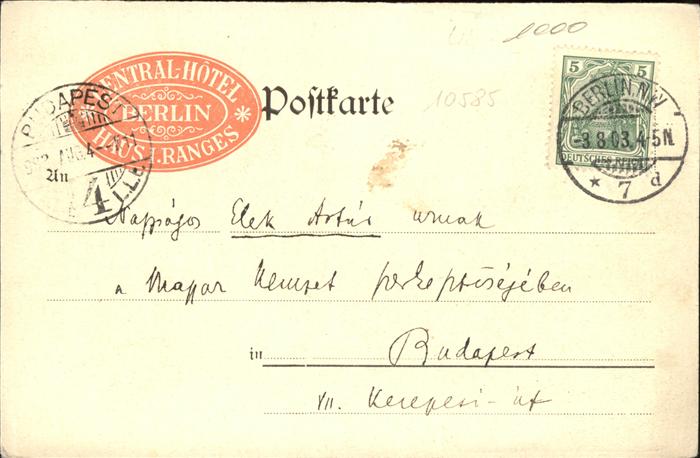 1000
CENTRAL-HÔTEL
BERLIN
HAUS I. RANGES *
Postkarte
10585
5 5
DEUTSCHES REICH
BERLIN.N.W.
-3.8.03.4-5N.
* 7 d
BUDAPEST
4
Nagyságos Elek Artúr urnak
a Magyar Nemzet szerkesztőségében
An
in Budapest
VII. Kerepesi-út